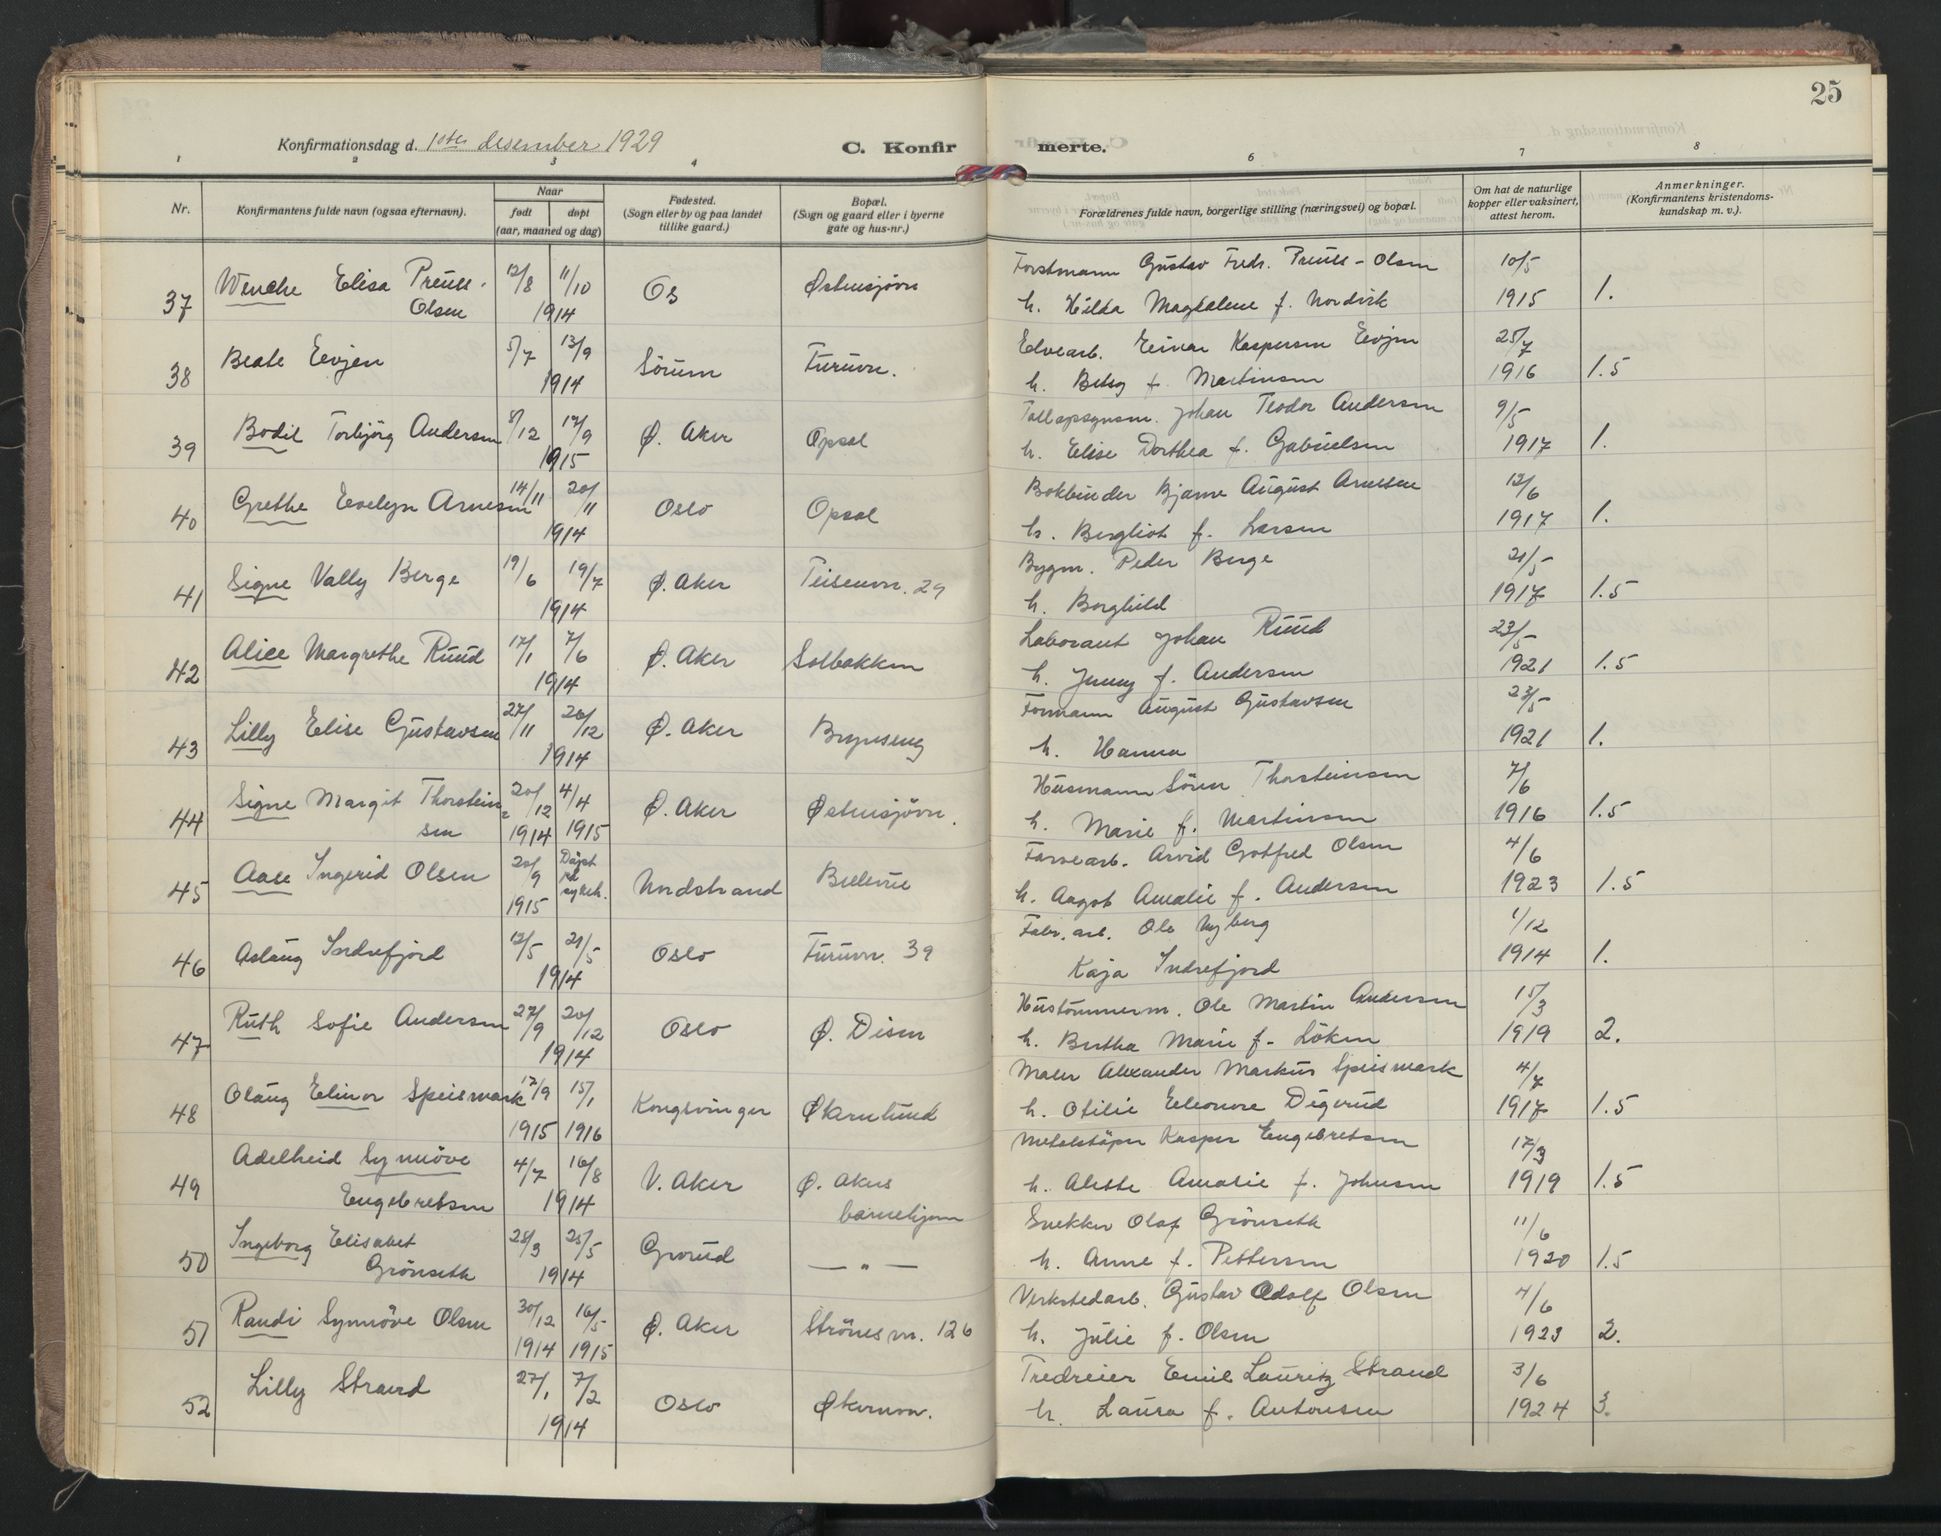 25
Konfirmationsdag d. 1ste desember 1929
C. Konfirmerte.
1 2 3 4 6 7 8
Nr.
Konfirmantens fulde navn (ogsaa efternavn).
Naar
født døpt
(aar, maaned og dag)
Fødested.
(Sogn eller by og paa landet
tillike gaard.)
Bopæl.
(Sogn og gaard eller i byerne
gate og hus-nr.)
Forældrenes fulde navn, borgerlige stilling (næringsvei) og bopæl.
Om hat de naturlige
kopper eller vaksinert,
attest herom.
Anmerkninger.
(Konfirmantens kristendoms-
kundskap m. v.).
37 Wenche Elisa Preuss- 12/8 11/10 Os Østensjøvn Forstmann Gustav Fredr. Preuss-Olsen 10/5
Olsen 1914 h. Hilda Magdalene f. Nordvik 1915 1.
38 Beate Eevjen 5/7 13/9 Sörum Furuvn. Elvearb. Einar Kaspersen Eevjen 25/7
1914 h. Betsy f. Martinsen 1916 1.5
39 Bodil Torbjörg Andersen 8/12 12/9 Ø. Aker Opsal Tollopsynsm. Johan Teodor Andersen 9/5
1915 h. Elise Dorthea f. Gabrielsen 1917 1.
40 Grethe Evelyn Arnesen 14/11 20/11 Oslo Opsal Bokbinder Bjarne August Arnesen 12/6
1914 h. Bergliot f. Larsen 1917 1.
41 Signe Vally Berge 19/6 19/7 Ø. Aker Teisenvn. 29 Bygm. Peder Berge 21/5
1914 h. Borghild 1917 1.5
42 Alice Margrethe Ruud 17/1 7/6 Ø. Aker Solbakken Laborant Johan Ruud 23/5
1914 h. Jenny f. Andersen 1921 1.5
43 Lilly Elise Gustavsen 27/11 26/12 Ø. Aker Brynseng Formann August Gustavsen 23/5
1914 h. Hanna 1921 1.
44 Signe Margit Thorstein 20/12 4/4 Ø. Aker Østensjøvn. Husmann Sören Thorsteinsen 7/6
sen 1914 1915 h. Marie f. Martinsen 1916 1.5
45 Aase Ingerid Olsen 20/9 Döpt på sykeh. Nordstrand Bellevue Farvearb. Arvid Gotfred Olsen 4/6
1915 h. Aagot Amalie f. Andersen 1923 1.5
46 Aslaug Indrefjord 12/5 21/5 Oslo Furuvn. 39 Fabr. arb. Ole Nyberg 1/12
1914 Kaja Indrefjord 1914 1.
47 Ruth Sofie Andersen 27/9 20/12 Oslo Ø. Disen Hustömmerm. Ole Martin Andersen 15/3
1914 h. Bertha Marie f. Löken 1919 2.
48 Olaug Elinor Speismark 17/9 15/1 Kongsvinger Økernlund Maler Alexander Markus Speismark 4/7
1915 1916 h. Otilie Eleonore Digerud 1917 1.5
49 Adelheid Synnöve 4/7 16/8 V. Aker Ø. Akers Metalstöper Kasper Engebretsen 17/3
Engebretsen 1914 barnehjem h. Alette Amalie f. Johnsen 1919 1.5
50 Ingeborg Elisabet 28/3 25/5 Grorud — " — Snekker Olaf Grönseth 11/6
Grönseth 1914 h. Anne f. Pettersen 1920 1.5
51 Randi Synnöve Olsen 30/12 16/5 Ø. Aker Strömsvn. 126 Verkstedarb. Gustav Adolf Olsen 4/6
1914 1915 h. Julie f. Olsen 1923 2.
52 Lilly Strand 27/1 7/2 Oslo Økernvn. Tredreier Emil Lauritz Strand 3/6
1914 h. Laura f. Antonsen 1924 3.